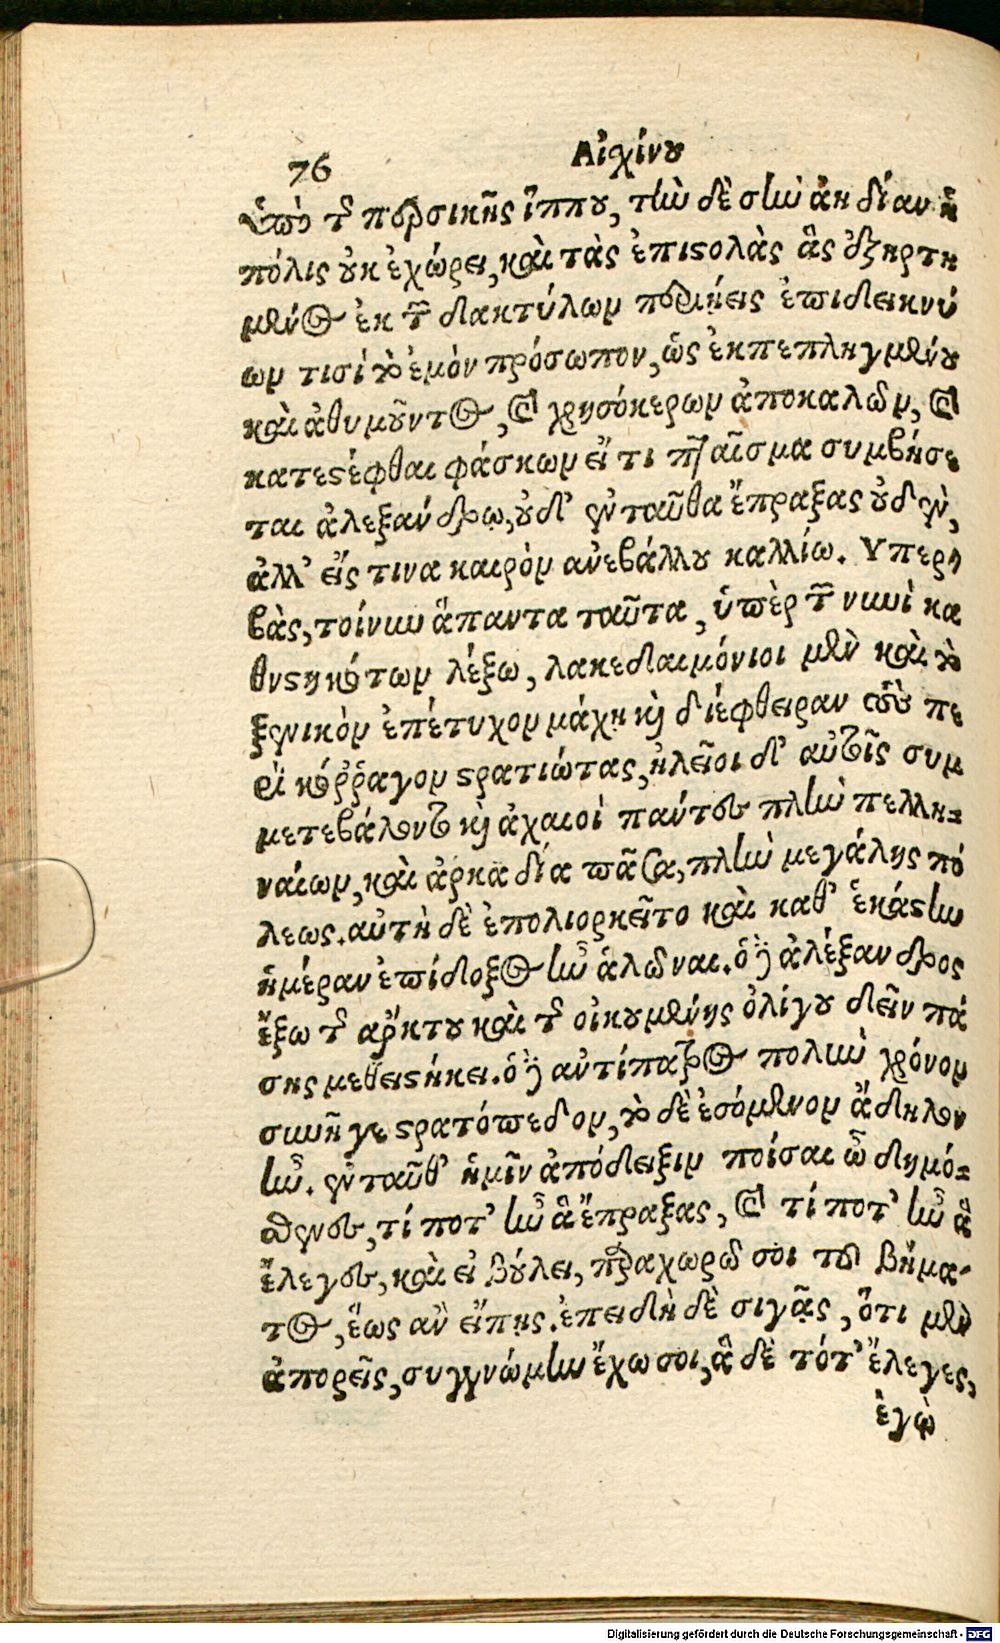 76 Αἰσχίνου
ὑπὸ τῆς περσικῆς ἵππου, τὴν δὲ σὴν ἀηδίαν ἡ
πόλις οὐκ ἐχώρει, καὶ τὰς ἐπιστολὰς ἃς ἐξηρτη
μένος ἐκ τῶν δακτύλων περιῄεις ἐπιδεικνύ
ων τισὶ τὸ ἐμὸν πρόσωπον, ὡς ἐκπεπληγμένου
καὶ ἀθυμοῦντος, καὶ χρυσόκερων ἀποκαλῶν, καὶ
κατεστέφθαι φάσκων εἴ τι πταῖσμα συμβήσε
ται ἀλεξάνδρῳ, οὐδ' ἐνταῦθα ἔπραξας οὐδέν,
ἀλλ' εἴς τινα καιρὸν ἀνεβάλλου καλλίω. Υπερ
βὰς, τοίνυν ἅπαντα ταῦτα, ὑπὲρ τῶν νυνὶ κα
θεστηκότων λέξω, λακεδαιμόνιοι μὲν καὶ τὸ
ξενικὸν ἐπέτυχον μάχῃ καὶ διέφθειραν τοὺς πε
ρὶ κόρραγον στρατιώτας, ἠλεῖοι δ' αὐτοῖς συμ
μετεβάλοντο καὶ ἀχαιοὶ πάντες πλὴν πελλη-
ναίων, καὶ ἀρκαδία πᾶσα, πλὴν μεγάλης πό
λεως. αὐτὴ δὲ ἐπολιορκεῖτο καὶ καθ' ἑκάστην
ἡμέραν ἐπίδοξος ἦν ἁλῶναι. ὁ δὲ ἀλέξανδρος
ἔξω τῆς ἄρκτου καὶ τῆς οἰκουμένης ὀλίγου δεῖν πά
σης μεθειστήκει. ὁ δὲ ἀντίπατρος πολὺν χρόνον
συνῆγε στρατόπεδον, τὸ δὲ ἐσόμενον ἄδηλον
ἦν. ἐνταῦθ' ἡμῖν ἀπόδειξιν ποίσαι ὦ δημό-
σθενες, τί ποτ' ἦν ἃ ἔπραξας, καὶ τί ποτ' ἦν ἃ
ἔλεγες, καὶ εἰ βούλει, παραχωρῶ σοι τοῦ βήμα-
τος, ἕως ἂν εἴπῃς. ἐπειδὴ δὲ σιγᾷς, ὅτι μὲν
ἀπορεῖς, συγγνώμην ἔχω σοι, ἃ δὲ τότ' ἔλεγες,
ἐγὼ
Digitalisierung gefördert durch die Deutsche Forschungsgemeinschaft - DFG